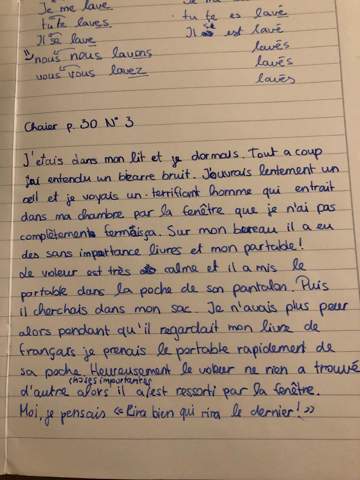 Je me lave
tu te laves
Il se lave
nous nous lavons
vous vous lavez
tu te es lavé
Il est lavé
lavés
lavés
lavés
Chaier p. 30 N°3
J'étais dans mon lit et je dormais. Tout a coup
j'ai entendu un bizarre bruit. J'ouvrais lentement un
œil et je voyais un terrifiant homme qui entrait
dans ma chambre par la fenêtre que je n'ai pas
complètement Sur mon bureau il a eu
des sans importance livres et mon portable!
Le voleur est très calme et il a mis le
portable dans la poche de son pantalon. Puis
il cherchais dans mon sac. Je n'avais plus peur
alors pendant qu'il regardait mon livre de
français je prenais le portable rapidement de
sa poche. Heureusement le voleur ne rien a trouvé
choses importantes
d'autre alors il a/est ressorti par la fenêtre.
Moi, je pensais «Rira bien qui rira le dernier!»